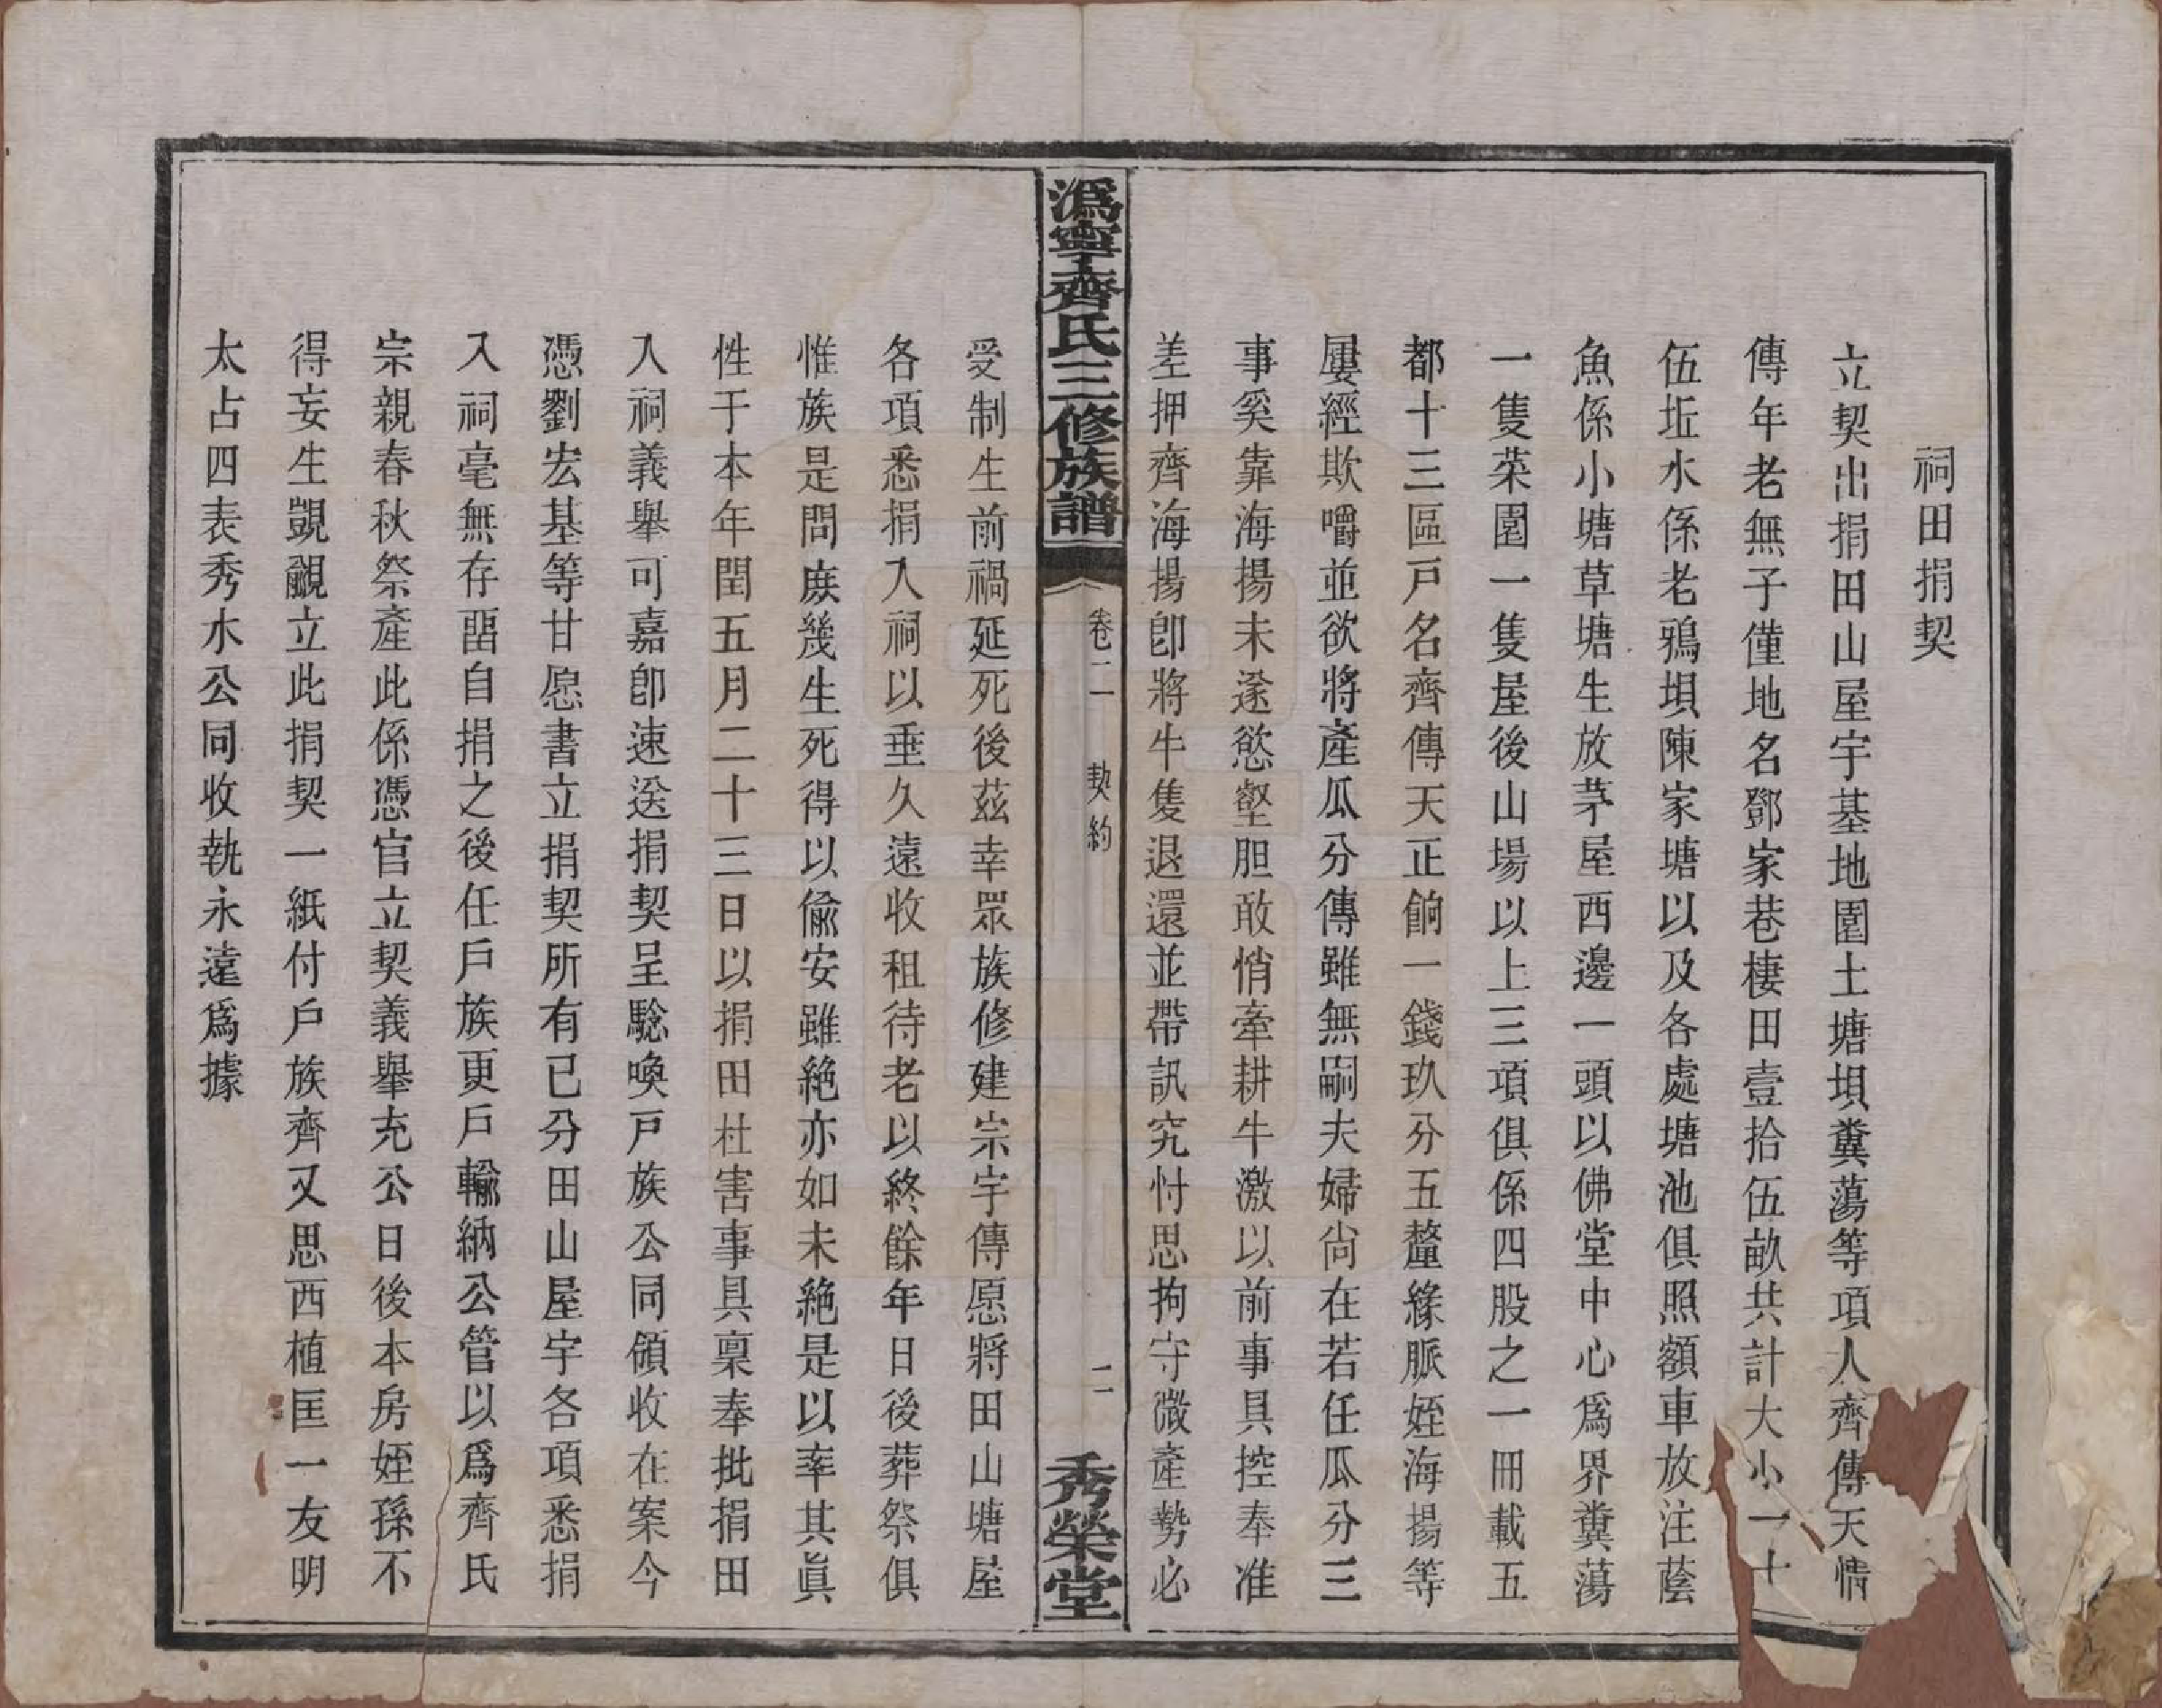 祠田捐契
立契出捐田山屋宇基地園土塘垻糞蕩等項人齊傳天情
傳年老無子僅地名鄧家巷棲田壹拾伍畝共計大小一十
伍坵水係老鴉垻陳家塘以及各處塘池俱照額車放注蔭
魚係小塘草塘生放茅屋西邊一頭以佛堂中心爲界糞蕩
一隻菜園一隻屋後山場以上三項俱係四股之一冊載五
都十三區戸名齊傳天正餉一錢玖分五釐緣脈姪海揚等
屢經欺嚼並欲將產瓜分傳雖無嗣夫婦尙在若任瓜分三
事奚靠海揚未遂慾壑胆敢悄牽耕牛激以前事具控奉准
差押齊海揚卽將牛隻退還並帶訊究忖思拘守微產勢必
潙寧齊氏三修族譜
卷二
契約
二
秀榮堂
受制生前禍延死後茲幸眾族修建宗宇傳愿將田山塘屋
各項悉捐入祠以垂久遠收租待老以終餘年日後葬祭俱
惟族是問庶幾生死得以偸安雖絶亦如未絶是以率其眞
性于本年閏五月二十三日以捐田杜害事具稟奉批捐田
入祠義舉可嘉卽速送捐契呈騐喚戸族公同領收在案今
憑劉宏基等甘愿書立捐契所有已分田山屋宇各項悉捐
入祠毫無存畱自捐之後任戸族更戸輸納公管以爲齊氏
宗親春秋祭產此係憑官立契義舉充公日後本房姪孫不
得妄生覬覦立此捐契一紙付戸族齊又思西植匡一友明
太占四表秀水公同收執永遠爲據